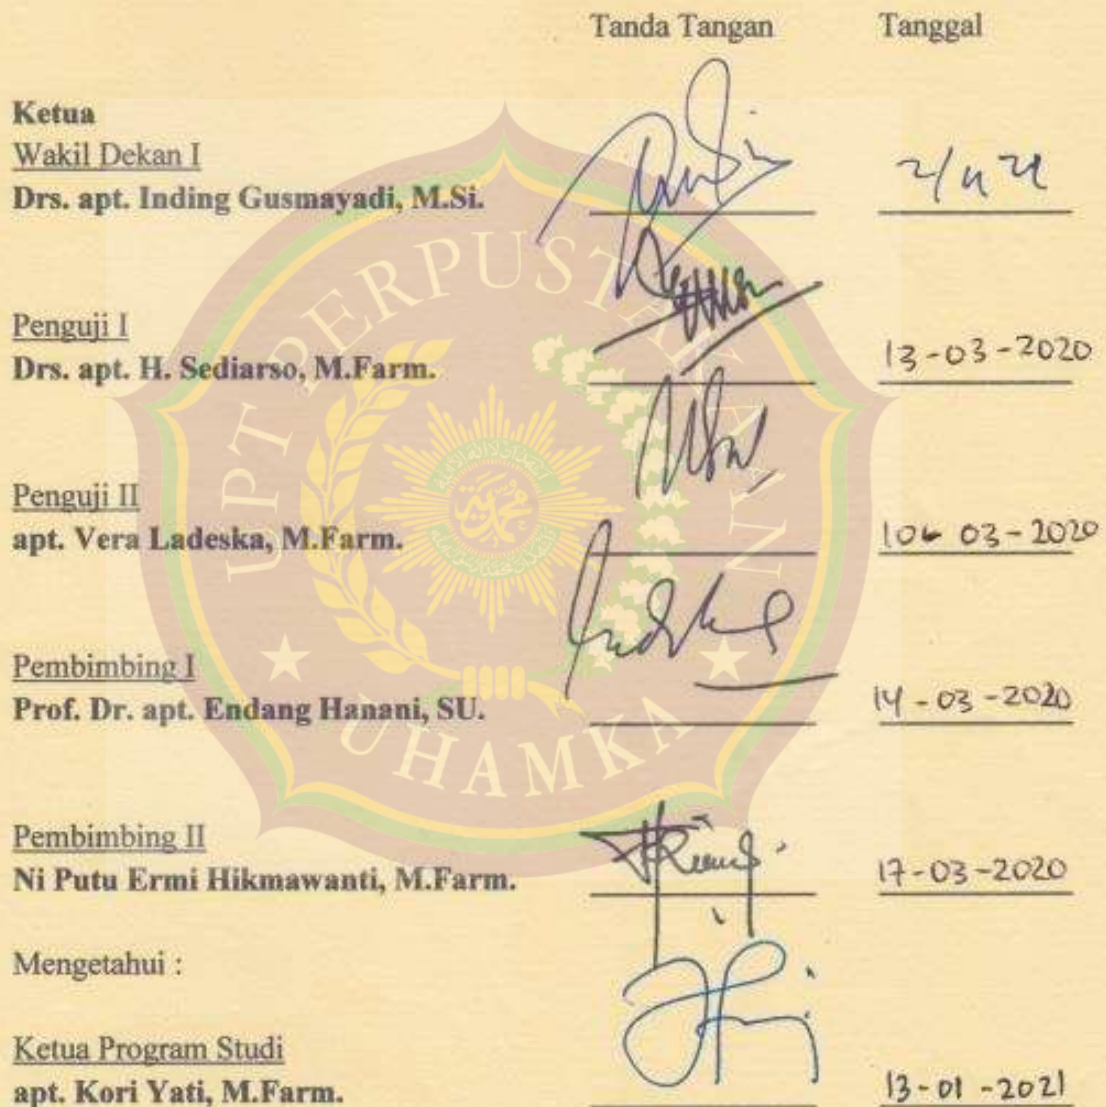 Tanda Tangan Tanggal
Ketua
Wakil Dekan I
Drs. apt. Inding Gusmayadi, M.Si.
Penguji I
Drs. apt. H. Sediarso, M.Farm. 13-03-2020
Penguji II
apt. Vera Ladeska, M.Farm. 03-2020
Pembimbing I
Prof. Dr. apt. Endang Hanani, SU. 14-03-2020
Pembimbing II
Ni Putu Ermi Hikmawanti, M.Farm. 17-03-2020
Mengetahui :
Ketua Program Studi
apt. Kori Yati, M.Farm. 13-01-2021
UPT PERPUSTAKAAN
UHAMKA